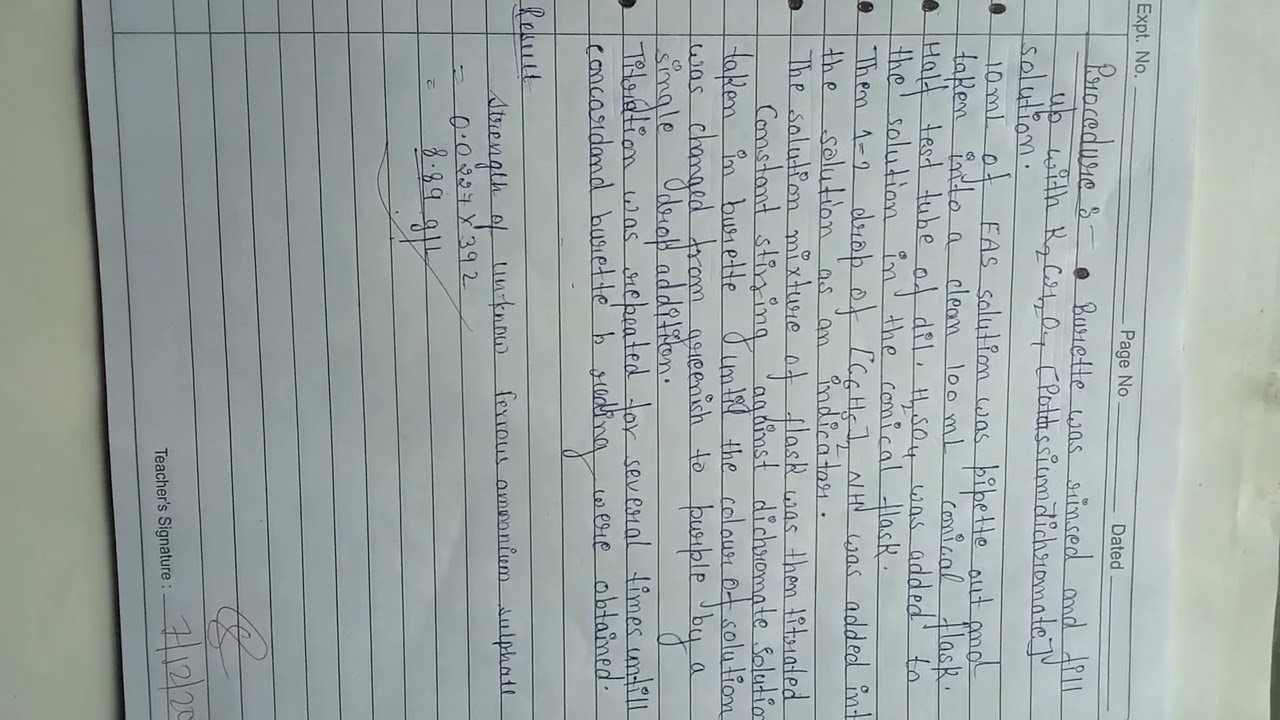 Expt. No. Page No Dated
Procedure :- • Burette was rinsed and fill
up with K2Cr2O7 [Pottassiumdichromate]
solution.
• 10ml of FAS solution was pipette out and
taken into a clean 100ml conical flask.
• Half test tube of dil. H2SO4 was added to
the solution in the conical flask.
• Then 1-2 drop of [C6H5]2 NH was added int
the solution as an indicator.
• The solution mixture of flask was then titrated
Constant stirring against dichromate solutio
taken in burette until the colour of solution
was changed from greenish to purple by a
single drop addition.
• Titration was repeated for several times untill
concordand burette reading were obtained.
Result
strength of un-know ferrous ammonium sulphate
= 0.0227 x 392
= 8.89 g/l
Teacher's Signature :
7/12/20